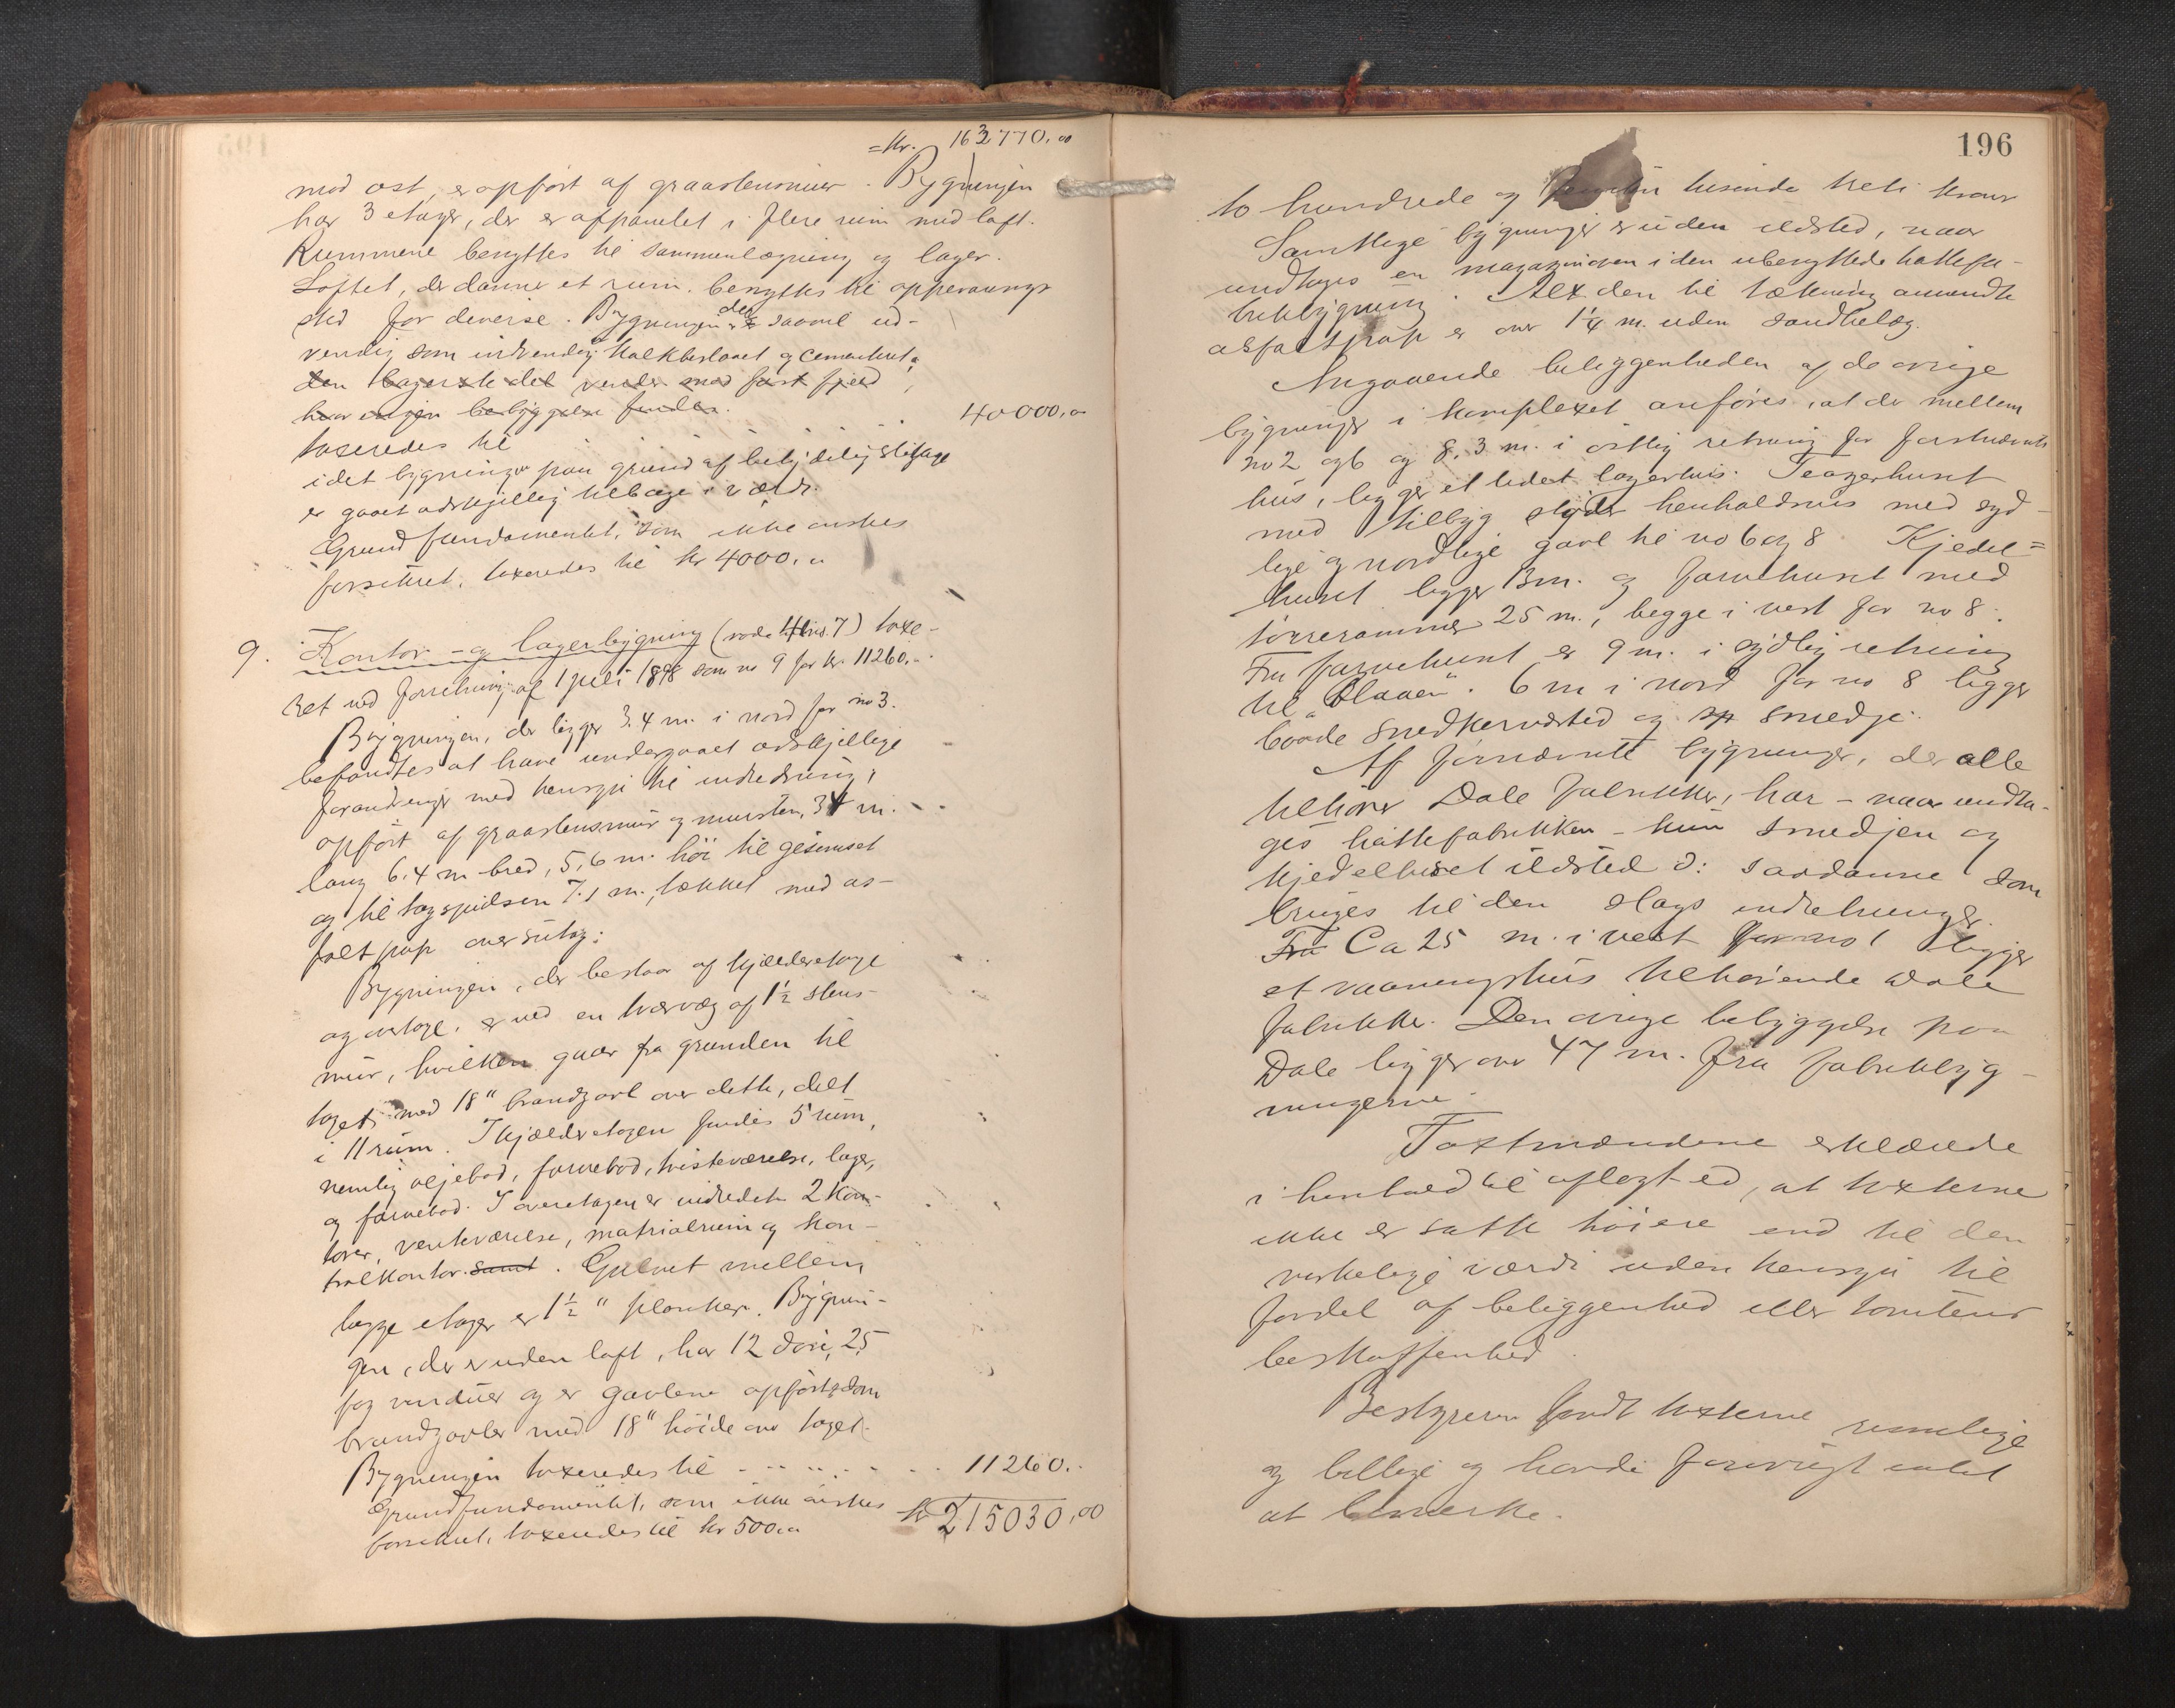 = Kr. 163770.00
mod øst, er opført af graastensmur. Bygningen
har 3 etager, der er afpanelet i flere rum med loft.
Rummene benyttes til sammenlægning og lager.
Loftet, der danner et rum, benyttes til opbevarings
sted for diverse. Bygningen er del saavel ud-
vendig som indvendig kalkbeslaaet og cementeret,
den bagerste del vender mod fast fjeld,
hvor ingen bebyggelse findes.
taxeredes til 40000,00
idet bygningen paa grund af betydelig slitage
er gaaet adskjellig tilbage i værdi.
Grundfundamentet, som ikke ønskes
forsikret, taxeredes til kr 4000.00
9. Kontor- og lagerbygning (rode 4 bris. 7) taxe-
ret ved forretning af 1 juli 1898 som no 9 for kr. 11260.-
Bygningen, der ligger 3.4 m. i nord for no 3.
befandtes at have undergaaet adskjellige
forandringer med hensyn til indredning,
opført af graastensmur og mursten, 34 m.
lang 6.4 m bred, 5,6 m. høi til gesimset
og til tagspidsen 7.1 m., tækket med as-
faltpap over sutag;
Bygningen, der bestaar af kjælderetage
og overetage, er ved en tværvæg af 1½ stens
mur, hvilken gaar fra grunden til
taget med 18" brandgavl over dette, delt
i 11 rum. I kjælderetagen findes 5 rum,
nemlig oljebod, farvebod, tvisteværelse, lager,
og farvebod. I overetagen er indredet 2 Kon-
torer, venteværelse, matrialrum og kon-
trolkontor samt. Gulvet mellem
begge etager er 1½" planker. Bygnin-
gen, der er uden loft, har 12 døre, 25
fag vinduer og er gavlene opført som
brandgavler med 18" høide over taget.
Bygningen taxeredes til 11260.-
Grundfundamentet, som ikke ønskes
forsikret, taxeredes til kr 500.00 kr 215030,00
196
to hundrede og femten tusinde treti kroner
Samtlige bygninger er uden ildsted, naar
undtages en magazinovn i den ubenyttede hattefa-
brikbygning. Alt den til tækning anvendte
asfaltpap er over 1¼ m. uden sandbelæg.
Angaaende beliggenheden af de øvrige
bygninger i komplexet anføres, at der mellem
no 2 og 6 og 8.3 m. i østlig retning for forstnævnte
hus, ligger et lidet lagerhus. Teagerhuset
med tilbyg støder henholdsvis med syd-
lige og nordlige gavl til no 6 og 8. Kjedel=
huset ligger 13 m. og farvehuset med
tørrerammer 25 m., begge i vest for no 8.
Fra farvehuset er 9 m. i sydlig retning
til "Blaaen". 6 m i nord for no 8 ligger
baade snedkerværksted og sp smedje.
Af førnævnte bygninger, der alle
tilhører Dale fabrikker, har – naar undta-
ges hattefabrikken – kun smedjen og
kjedelhuset ildsted ɔ: saadanne som
bruges til den slags indretninger.
Fra Ca 25 m. i vest for no 1 ligger
et vaaningshus tilhørende Dale
fabrikker. Den øvrige bebyggelse paa
Dale ligger over 47 m. fra fabrikbyg-
ningerne.
Taxtmændene erklærede
i henhold til aflagt ed, at taxterne
ikke er satte høiere end til den
virkelige værdi uden hensyn til
fordel af beliggenhed eller tomtens
beskaffenhed.
Bestyreren fandt taxterne rimelige
og billige og havde forøvrigt intet
at bemerke.